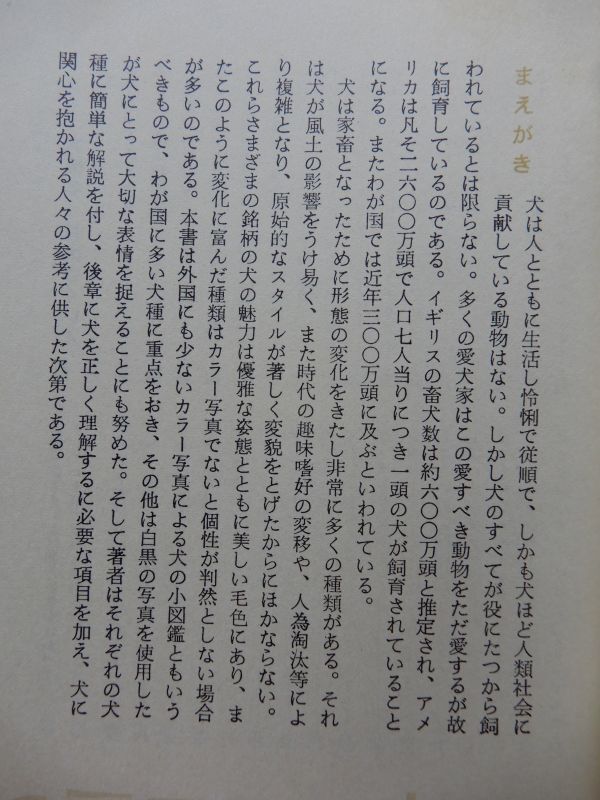 まえがき
犬は人とともに生活し怜悧で従順で、しかも犬ほど人類社会に
貢献している動物はない。しかし犬のすべてが役にたつから飼
われているとは限らない。多くの愛犬家はこの愛すべき動物をただ愛するが故
に飼育しているのである。イギリスの畜犬数は約六〇〇万頭と推定され、アメ
リカは凡そ二六〇〇万頭で人口七人当りにつき一頭の犬が飼育されていること
になる。またわが国では近年三〇〇万頭に及ぶといわれている。
犬は家畜となったために形態の変化をきたし非常に多くの種類がある。それ
は犬が風土の影響をうけ易く、また時代の趣味嗜好の変移や、人為淘汰等によ
り複雑となり、原始的なスタイルが著しく変貌をとげたからにほかならない。
これらさまざまの銘柄の犬の魅力は優雅な姿態とともに美しい毛色にあり、ま
たこのように変化に富んだ種類はカラー写真でないと個性が判然としない場合
が多いのである。本書は外国にも少ないカラー写真による犬の小図鑑ともいう
べきもので、わが国に多い犬種に重点をおき、その他は白黒の写真を使用した
が犬にとって大切な表情を捉えることにも努めた。そして著者はそれぞれの犬
種に簡単な解説を付し、後章に犬を正しく理解するに必要な項目を加え、犬に
関心を抱かれる人々の参考に供した次第である。